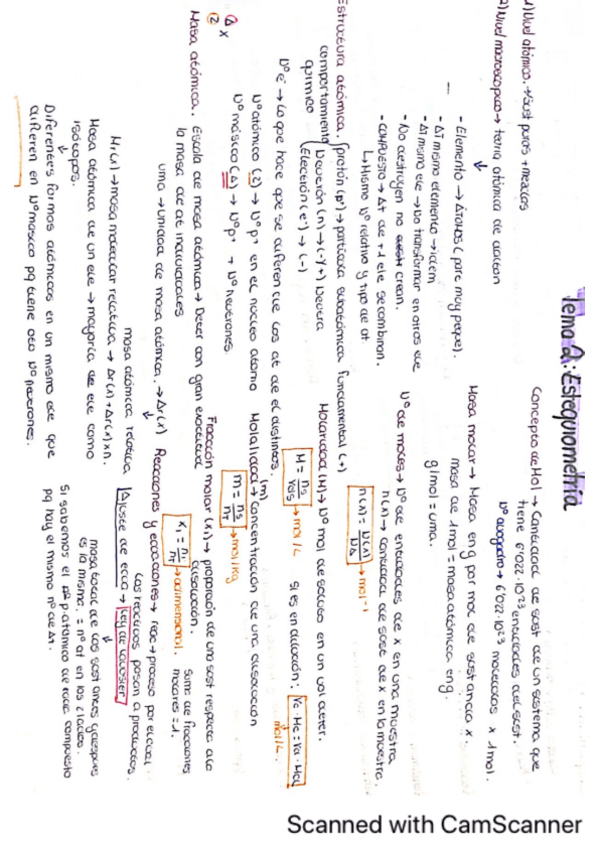 Tema 2: Estequiometría
1) Nivel atómico. → Sust puras + mezclas
2) Nivel macroscópico → teoría atómica de dalton
- Elemento → ÁTOMOS (pore muy peque).
- ΔT mismo elemento → idem
- ΔT mismo ele → No transformar en otros ele
- No destruyen no crean.
- COMPUESTO → ΔT de + 1 ele se combinan.
↳ Mismo Nº relativo y tipo de at
Estructura atómica.
comportamiento químico
protón (p⁺) → partícula subatómica fundamental (+)
Neutrón (n) → (-y+) Neutra
Electrón (e⁻) → (-)
Nº e⁻ → Lo que hace que se diferencie los at de el distintos.
Nº atómico (Z) → Nº p⁺ en el núcleo átomo
Nº másico (A) → Nº p⁺ + Nº neutrones.
A
Z
X
Masa atómica. Escala de masa atómica → Deter con gran exactitud
la masa de at individuales
uma → unidad de masa atómica. → Ar(x)
masa atómica relativa.
Mr(x) → masa molecular relativa → Ar(x) + Ar(x) × n.
Masa atómica de un ele → mayoría de ele como
isótopos.
Diferentes formas atómicas en un mismo ele que
difieren en Nº másico pq tiene dto Nº neutrones.
Concepto de Mol → Cantidad de sust de un sistema que
tiene 6'022·10²³ entidades del sist.
Nº avogadro → 6'022·10²³ moléculas x 1 mol.
Masa molar → Masa en g por mol de sustancia x.
masa de 1 mol = masa atómica en g.
g/mol = uma.
Nº de moles → Nº de entidades de x en una muestra.
n(x) → cantidad de sust de x en la muestra.
n(x) = N(x)/NA → mol⁻¹
Molaridad (M) → Nº mol de soluto en un vol deter.
M = ns/Vdis → mol/L
Si es en dilución: Vc · Mc = Vd · Md
mol/L.
Molalidad → Concentración de una disolución
(m)
m = ns/ → mol/kg
Fracción molar (xi) → proporción de una sust respecto a la
disolución.
xi = ni/nT → adimensional.
Suma de fracciones
molares = 1.
Reacciones y ecuaciones → reac → proceso por el cual
los reactivos pasan a productos.
Ajuste de ecua → Ley de Lavoisier
masa total de las sost antes y después
es la misma. = nº at en los 2 lados.
Si sabemos el nº p. atómico de cada compuesto
pq hay el mismo nº de
Scanned with CamScanner